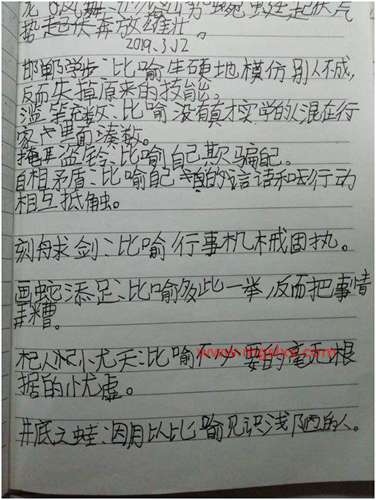 山势蜿蜒起伏气
势起伏奔放雄壮。
2019.3.12
邯郸学步:比喻生硬地模仿别人不成,
反而失掉原来的技能。
滥竽充数:比喻没有真才实学的人混在行
家里面凑数。
掩耳盗铃:比喻自己欺骗自己。
自相矛盾:比喻自己的言语和行动
相互抵触。
刻舟求剑:比喻行事机械固执。
画蛇添足:比喻多此一举,反而把事情
弄糟。
杞人忧天:比喻不必要的毫无根
据的忧虑。
井底之蛙:因用以比喻见识浅陋的人。